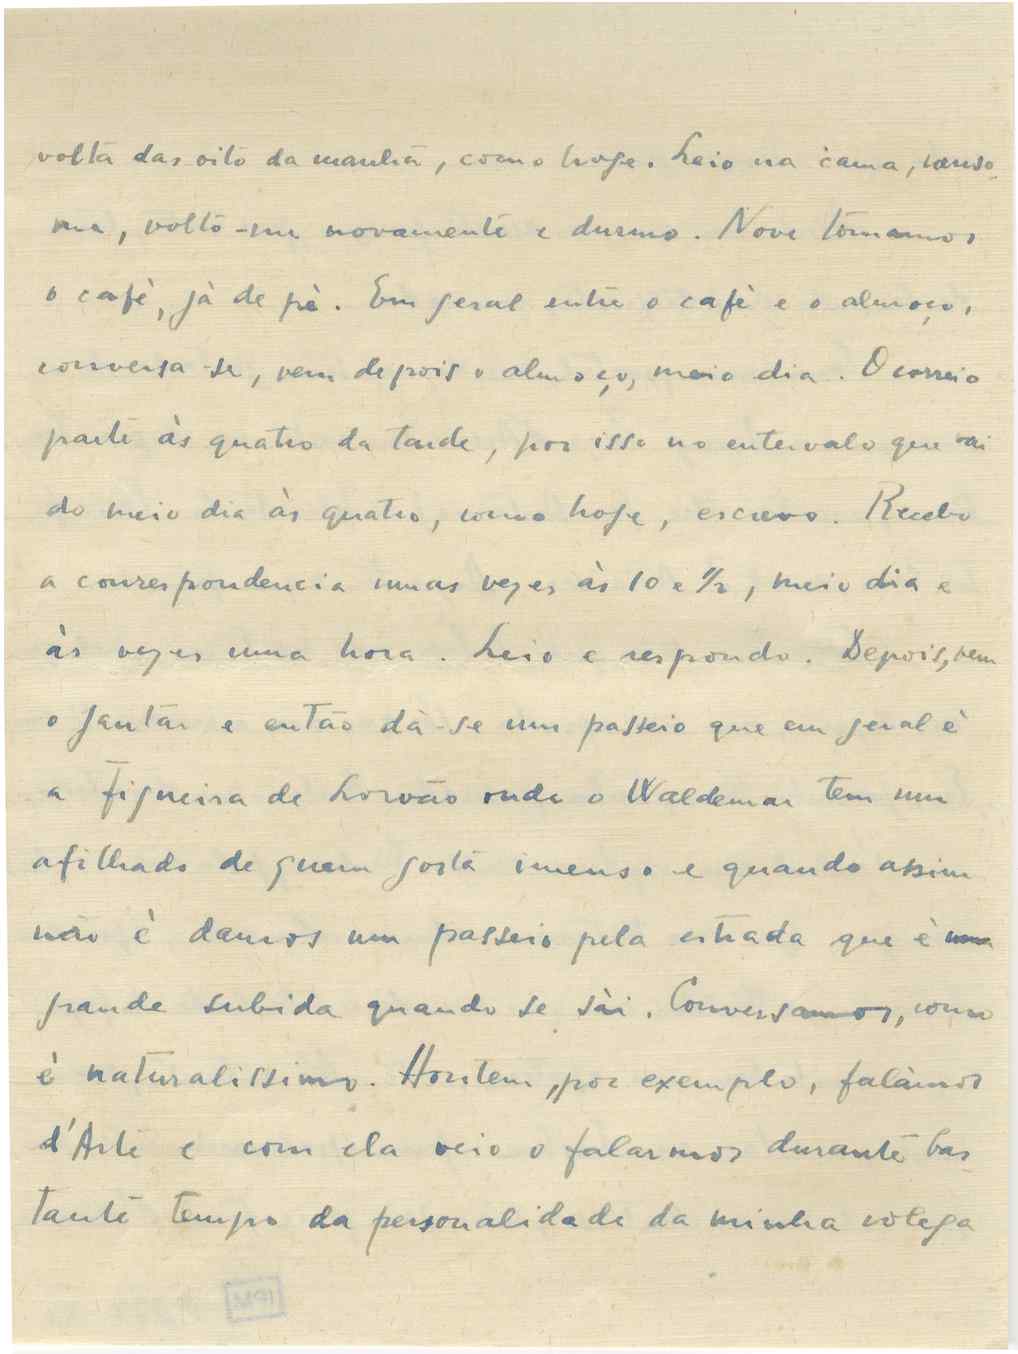 volta das oito da manhã, como hoje. Leio na cama, canso-
me, volto-me novamente e durmo. Nove tomamos
o café, já de pé. Em geral entre o café e o almoço,
conversa-se, vem depois o almoço, meio dia. O correio
parte às quatro da tarde, por isso no entervalo que vai
do meio dia às quatro, como hoje, escrevo. Recebo
a correspondencia umas vezes às 10 e 1/2, meio dia e
às vezes uma hora. Leio e respondo. Depois, vem
o jantar e então dá-se um passeio que em geral è
a Figueira de Lorvão onde o Waldemar tem um
afilhado de quem gosta imenso e quando assim
não è damos um passeio pela estrada que è uma
grande subida quando se sài. Conversamos, como
è naturalissimo. Hontem, por exemplo, falàmos
d'Arte e com ela veio o falarmos durante bas
tante tempo da personalidade da minha colega